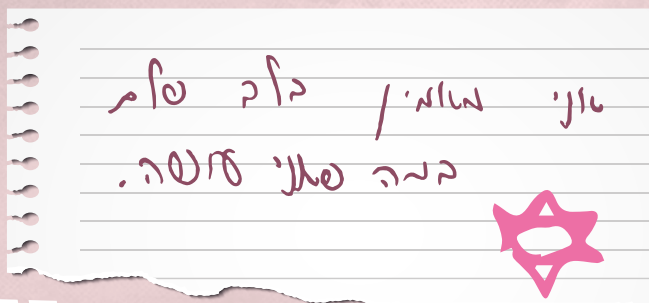 אני מאמין בלב שלם
במה שאני עושה.